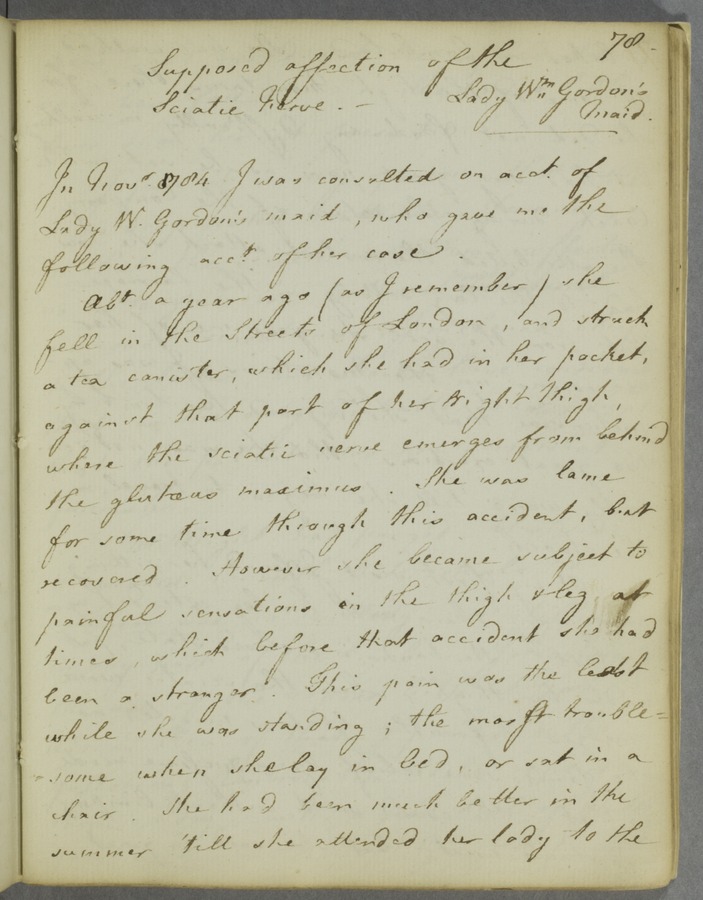 78.
Supposed affection of the
Sciatic Nerve. — Lady Wm. Gordon's
Maid.
In Novr. 1784 I was consulted on acct. of
Lady W. Gordon's maid, who gave me the
following acct. of her case.
Abt. a year ago (as I remember) she
fell in the Streets of London, and struck
a tea canister, which she had in her pocket,
against that part of her right thigh,
where the sciatic nerve emerges from behind
the glutæus maximus. She was lame
for some time through this accident, but
recovered. However she became subject to
painful sensations in the thigh & leg at
times, which before that accident she had
been a stranger. This pain was the least
while she was standing; the most trouble=
=some when she lay in bed, or sat in a
chair. She had been much better in the
summer 'till she attended her lady to the